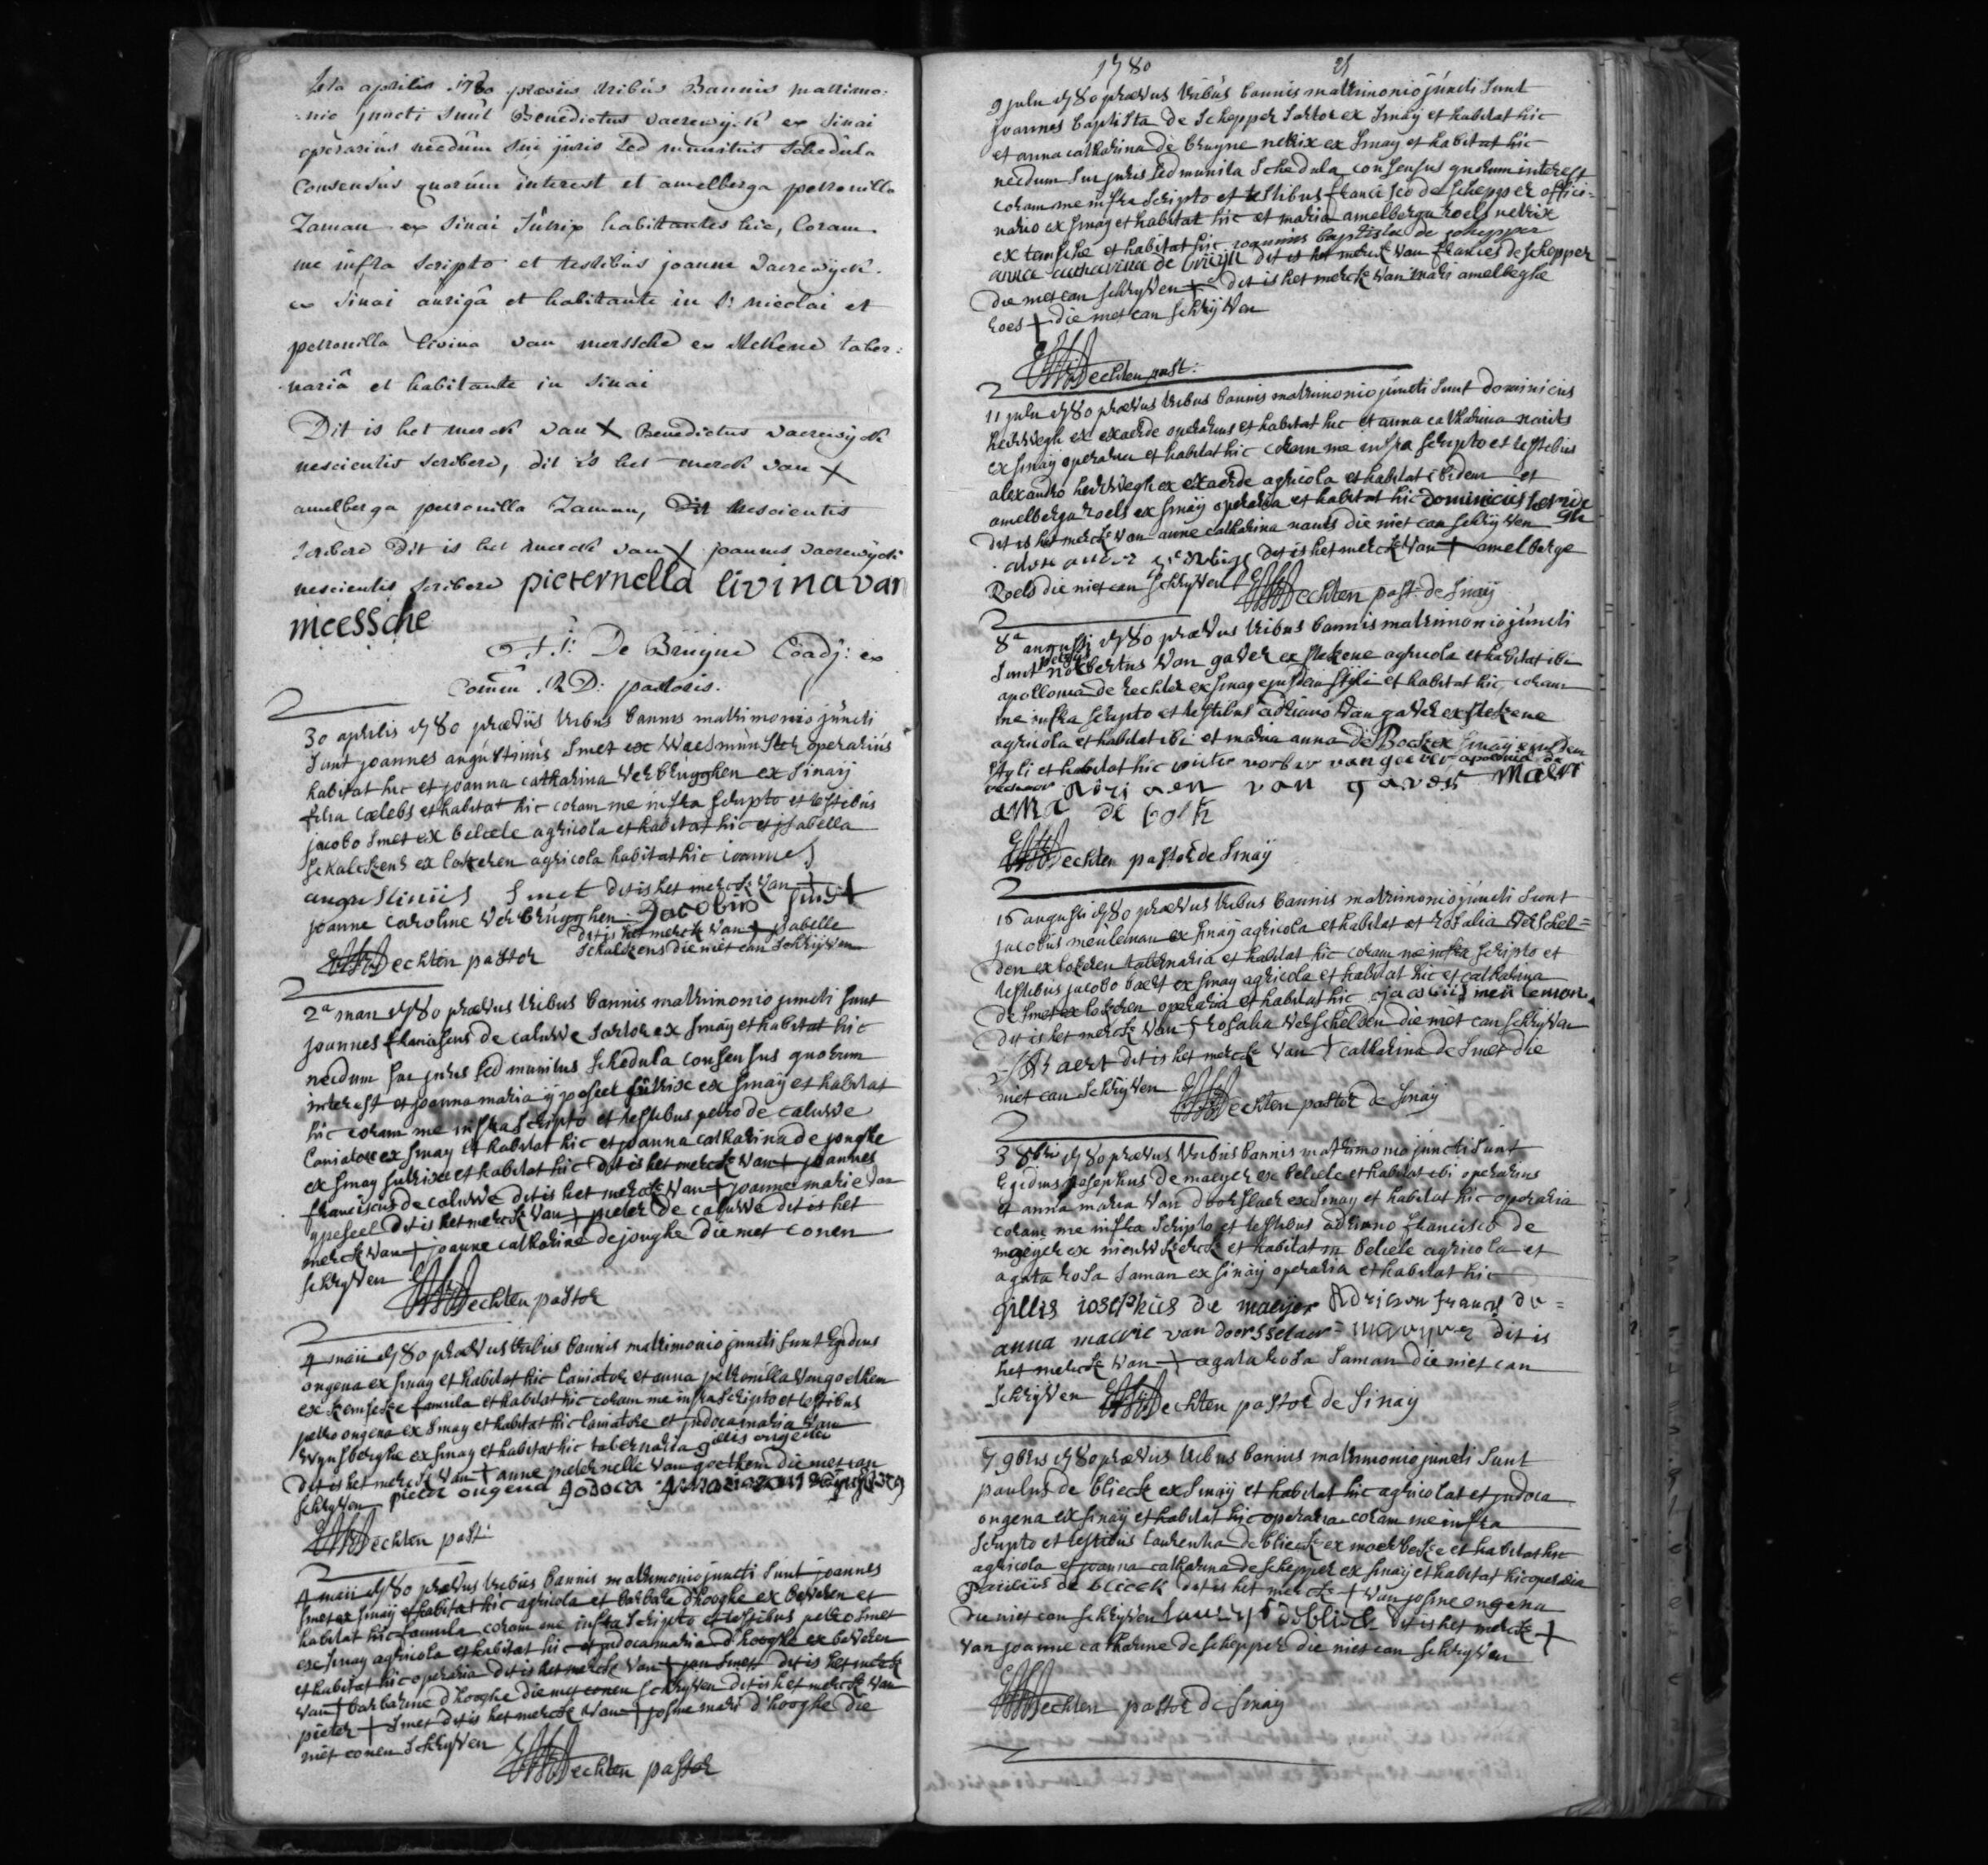 aprilis 1780 prævus tribus Bannis matrimo:
nio juncti sunt Benedictus vaerewyck ex Sinai
operarius necdum sui juris sed munitus schedula
consensus quorum interest et amelberga petronilla
Zaman ex Sinai Sutrix habitantes hic, Coram
me infra scripto et testibus joanne vaerewyck
ex Sinai auriga et habitante in S: nicolai et
petronilla livina van mersche ex Stekene taber:
naria et habitante in Sinai
Dit is het merck van X Benedictus vaerewyck
nescientis scribere, dit is het merck van X
amelberga petronilla Zaman, nescientis
scribere Dit is het merck van X joannes vaerewyck
nescientis scribere pieternella livina van
meessche
De Bruyne Coadj: ex
Comm R D: pastoris.
30 aprilis 1780 prævus tribus bannis matrimonio juncti
sunt joannes augustinus Smet ex Waesmunster operarius
habitat hic et joanna catharina Verbrugghen ex Sinaij
filia cælebs et habitat hic coram me infra scripto et testibus
jacobo Smet ex belcele agricola et habitat hic et isabella
schalckens ex lokeren agricola habitat hic ioannes
augustinus Smet dit is het merck van +
joanne caroline Verbrugghen Jacobus smet
dit is het merck van + isabelle
Echten pastor schalckens die niet can schrijven
2a maii 1780 prævus tribus bannis matrimonio juncti sunt
joannes franciscus de caluwe sartor ex Sinaij et habitat hic
necdum sui juris sed munitus schedula consensus quorum
interest et joanna maria ijposeel sutrix ex Sinaij et habitat
hic coram me infra scripto et testibus petro de caluwe
laniatore ex Sinay et habitat hic et joanna catharina de jonghe
ex Sinay sutrix et habitat hic dit is het merck van + joannes
franciscus de caluwe dit is het merck van + joanne marie van
ypeseel dit is het merck van + pieter de caluwe dit is het
merck van + joanne catharine de jonghe die niet conen
schryven
Echten pastor
4 maii 1780 prævus tribus bannis matrimonio juncti sunt Egidius
ongena ex Sinay et habitat hic laniator et anna petronilla van goethem
ex kemseke famula et habitat hic coram me infra scripto et testibus
petro ongena ex Sinay et habitat hic laniatore et judoca maria van
Wynsberghe ex Sinay et habitat hic tabernaria gillis ongena
dit is het merck van + anne pieternelle van goethem die niet can
schryven pieter ongena Jodoca maria van
Echten past
4 maii 1780 prævus tribus bannis matrimonio juncti sunt joannes
smet ex Sinaij et habitat hic agricola et barbara d'hooghe ex beveren et
habitat hic famula coram me infra scripto et testibus petro smet
ex Sinay agricola et habitat hic et judoca maria d'hooghe ex beveren
et habitat hic operaria dit is het merck van + jan Smet dit is het merck
van + barbarine d'hooghe die niet conen schryven dit is het merck van
pieter + Smet dit is het merck van + josine marie d'hooghe die
niet conen schryven
Echten pastor
1780 21
9 julii 1780 prævus tribus bannis matrimonio juncti sunt
joannes baptista de Schepper sartor ex Sinaij et habitat hic
et anna catharina de bruyne netrix ex Sinay et habitat hic
necdum sui juris sed munita schedula consensus quorum interest
coram me infra scripto et testibus francisco de schepper offici=
nario ex Sinay et habitat hic et maria amelberga roels netrix
ex tamsche et habitat hic joannis baptista de schepper
anna catharina de bruyn dit is het merck van francies de schepper
die niet can schryven + dit is het merck van marie amelberghe
roes + die niet can schrijven
Echten past:
11 julii 1780 prævus tribus bannis matrimonio juncti sunt dominicus
herwegh ex exaerde operarius et habitat hic et anna catharina nauts
ex Sinaij operaria et habitat hic coram me infra scripto et testibus
alexandro herwegh ex exaerde agricola et habitat ibidem et
amelberga roels ex Sinaij operaria et habitat hic dominicus
dit is het merck van anne catharina nauts die niet can schrijven
dit is het merck van + amelberge
Roels die niet can schryven Echten past: de Sinaij
8a augusti 1780 prævus tribus bannis matrimonio juncti
sunt petrus norbertus van gaver ex stekene agricola et habitat ibi
apollonia de rechter ex Sinay ejusdem styli et habitat hic coram
me infra scripto et testibus adriano van gaver ex stekene
agricola et habitat ibi et maria anna de Bock ex Sinaij ejusdem
styli et habitat hic pieter norber van gaever apolonia de
rechter Adriaen van gaver Mari
anna de bock
Echten pastor de Sinaij
16 augusti 1780 prævus tribus bannis matrimonio juncti sunt
jacobus meuleman ex Sinaij agricola et habitat et rosalia Verschel=
den ex lokeren tabernaria et habitat hic coram me infra scripto et
testibus jacobo baert ex Sinay agricola et habitat hic et catharina
de smet ex lokeren operaria et habitat hic jacobus meuleman
dit is het merck van + rosalia Verschelden die niet can schryven
baert dit is het merck van + catharina de Smet die
niet can schryven Echten pastor de Sinaij
3 8bris 1780 prævus tribus bannis matrimonio juncti sunt
Egidius josephus de maeyer ex belcele et habitat ibi operarius
et anna maria van doorslaer ex Sinay et habitat hic operaria
coram me infra scripto et testibus adriano francisco de
maeyer ex nieuwkercke et habitat in belcele agricola et
agata rosa Saman ex Sinaij operaria et habitat hic
gillis iosephus de maeijer Adriaen francis de=
anna marie van doorsselaer= maeyer dit is
het merck van + agata rosa Saman die niet can
schryven Echten pastor de Sinay
7 9bris 1780 prævus tribus bannis matrimonio juncti sunt
paulus de blieck ex Sinaij et habitat hic agricola et judoca
ongena ex Sinaij et habitat hic operaria coram me infra
scripto et testibus laurentio de blieck ex moerbeke et habitat hic
agricola et joanna catharina de schepper ex Sinaij et habitat hic operaria
Paulus de blieck dit is het merck + van josine ongena
die niet can schryven de blieck dit is het merck +
van joanne catharine de schepper die niet can schryven
Echten pastor de Sinaij